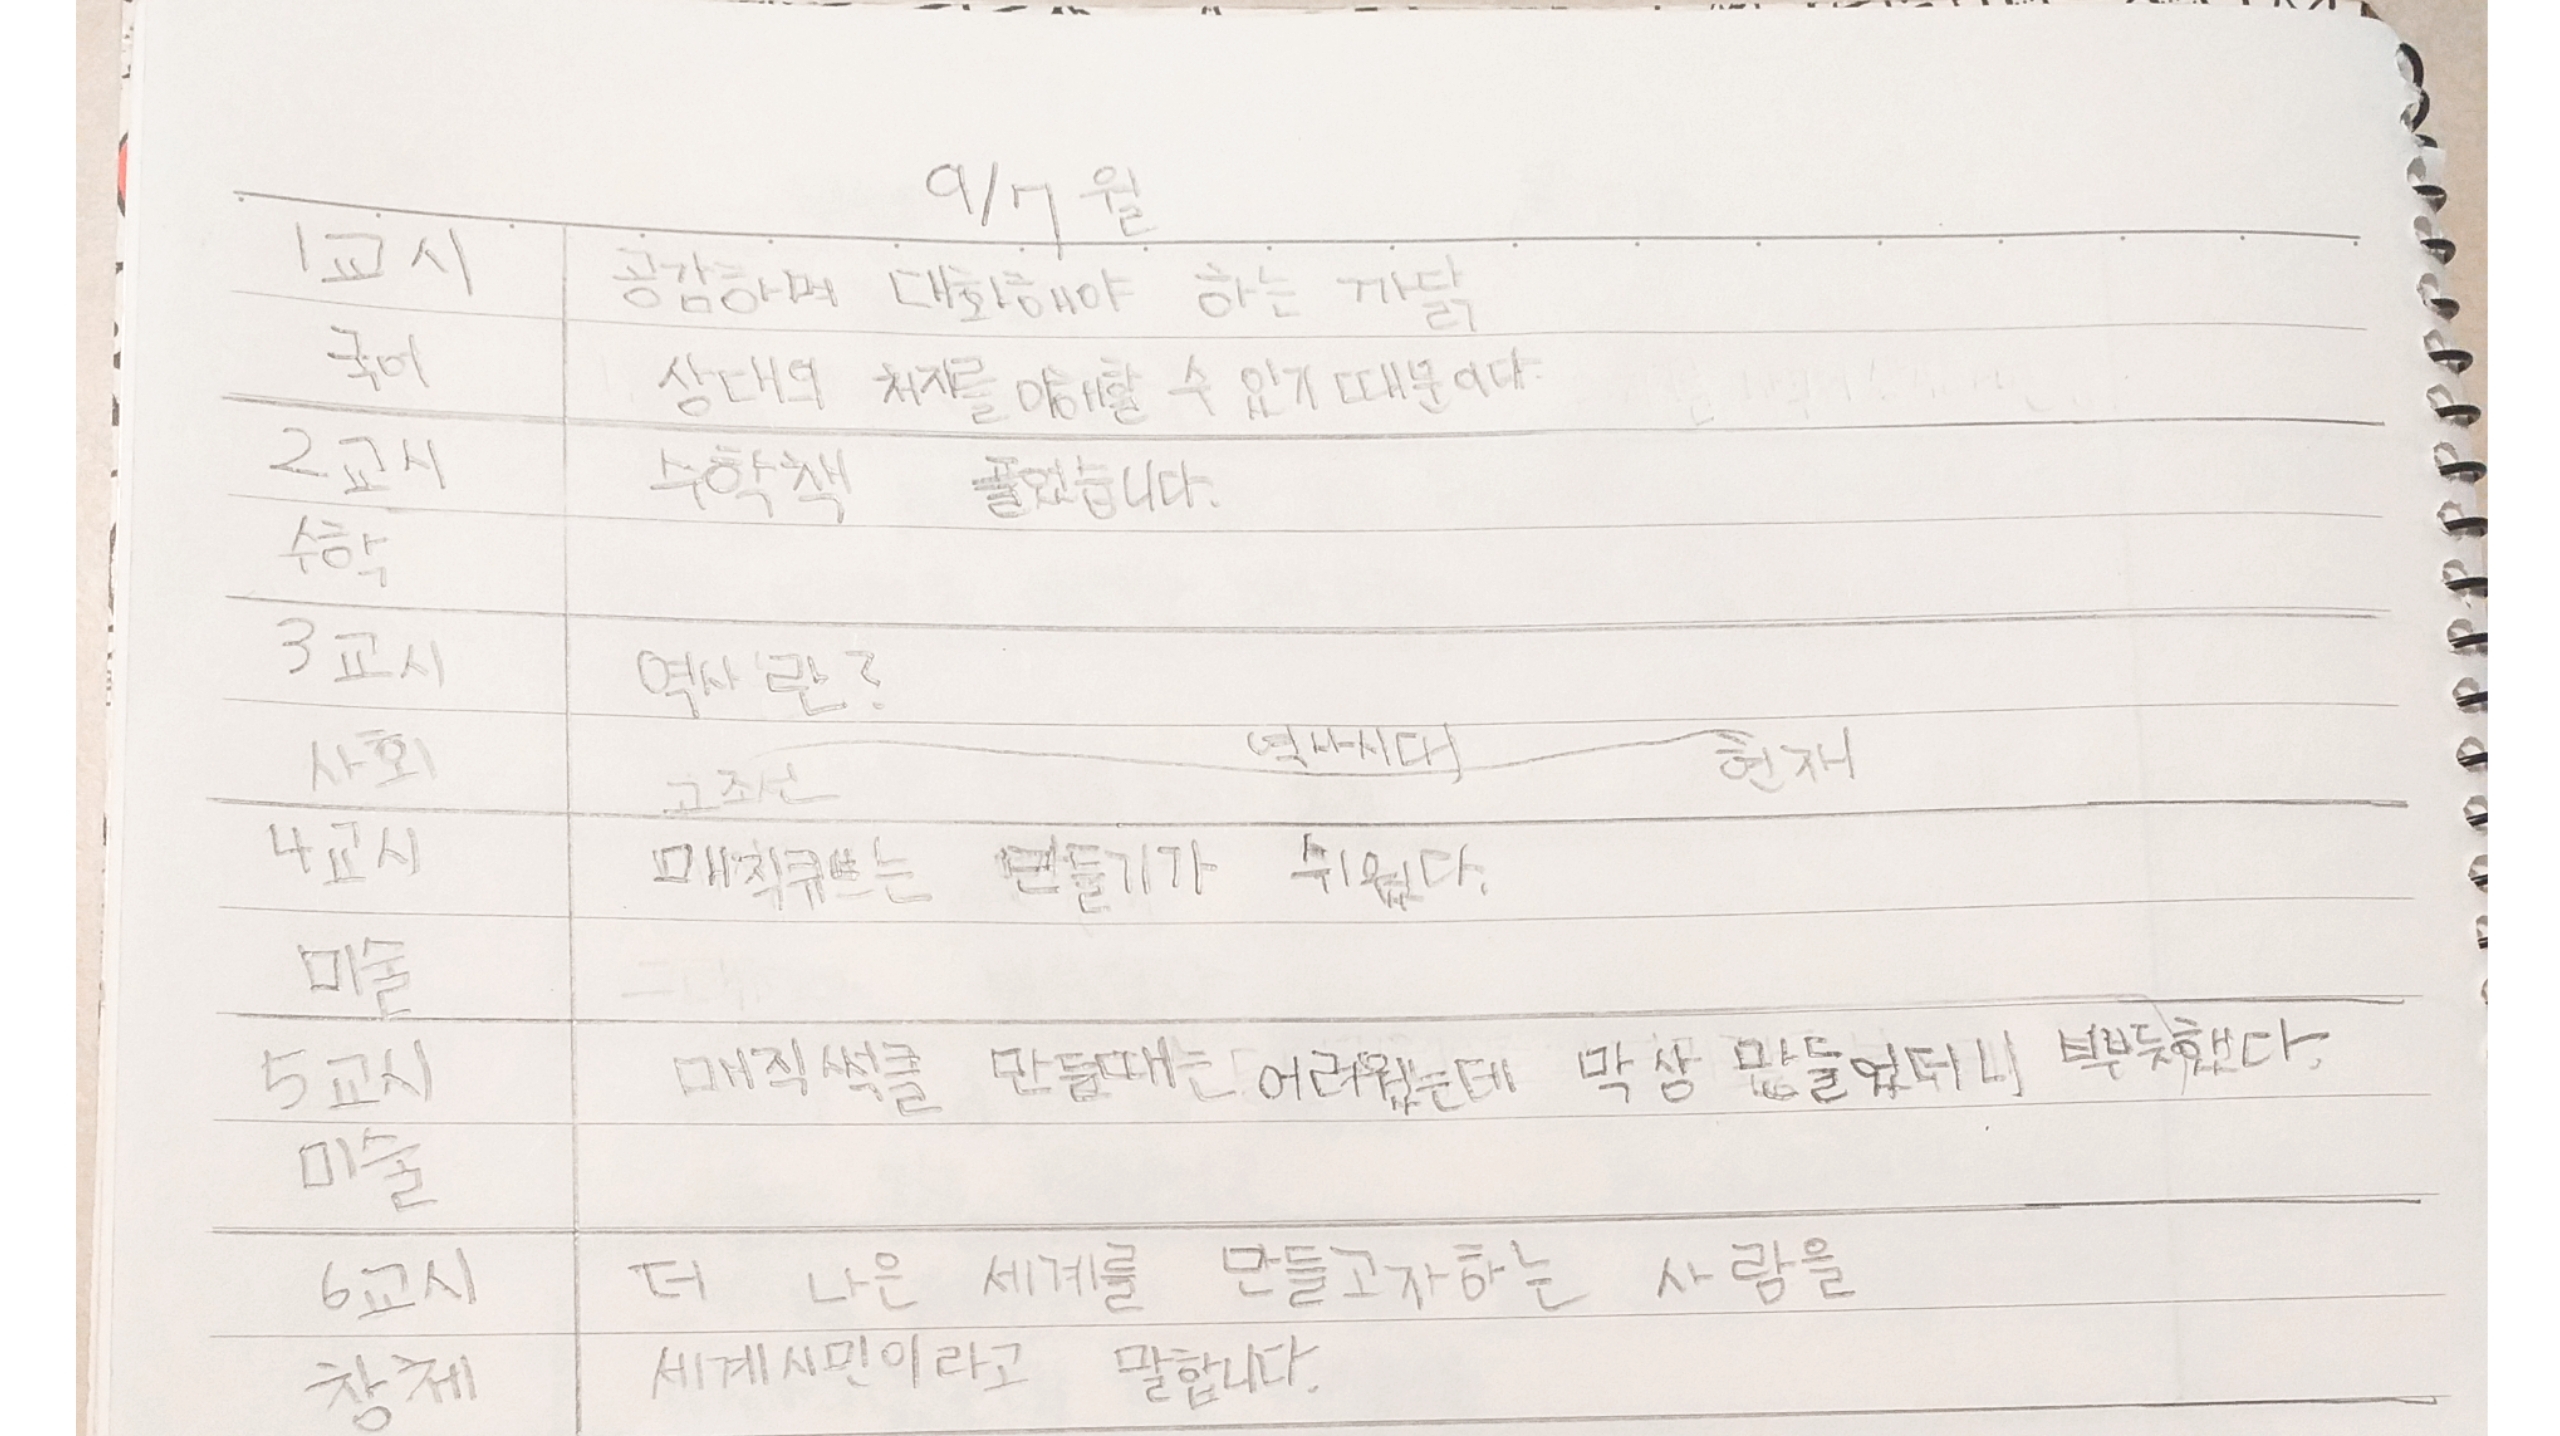 9/7 월
1교시 공감하며 대화해야 하는 까닭
국어 상대의 처지를 이해할 수 있기 때문이다
2교시 수학책 풀었습니다.
수학
3교시 역사란?
사회 고조선 역사시대 현재
4교시 매직큐브는 만들기가 쉬웠다.
미술
5교시 매직썩클 만들때는 어려웠는데 막상 만들었더니 뿌듯했다.
미술
6교시 더 나은 세계를 만들고자하는 사람을
창체 세계시민이라고 말합니다.